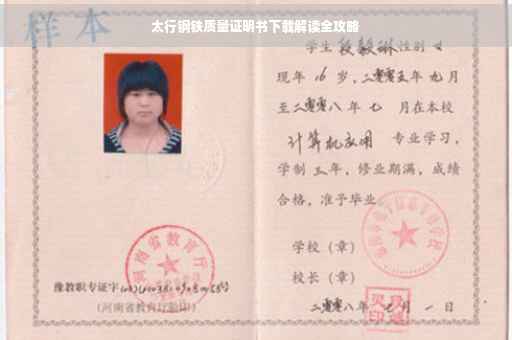 太行钢铁质量证明书下载解读全攻略
样本
学生段毅琳性别女
现年16岁，二零零五年九月
至二零零八年七 月在本校
计算机应用 专业学习，
学制三年，修业期满，成绩
合格，准予毕业。
学校（章）
校长（章）
二零零八年七月一日
河南省教育厅
豫教职专证字
（河南省教育厅验印）